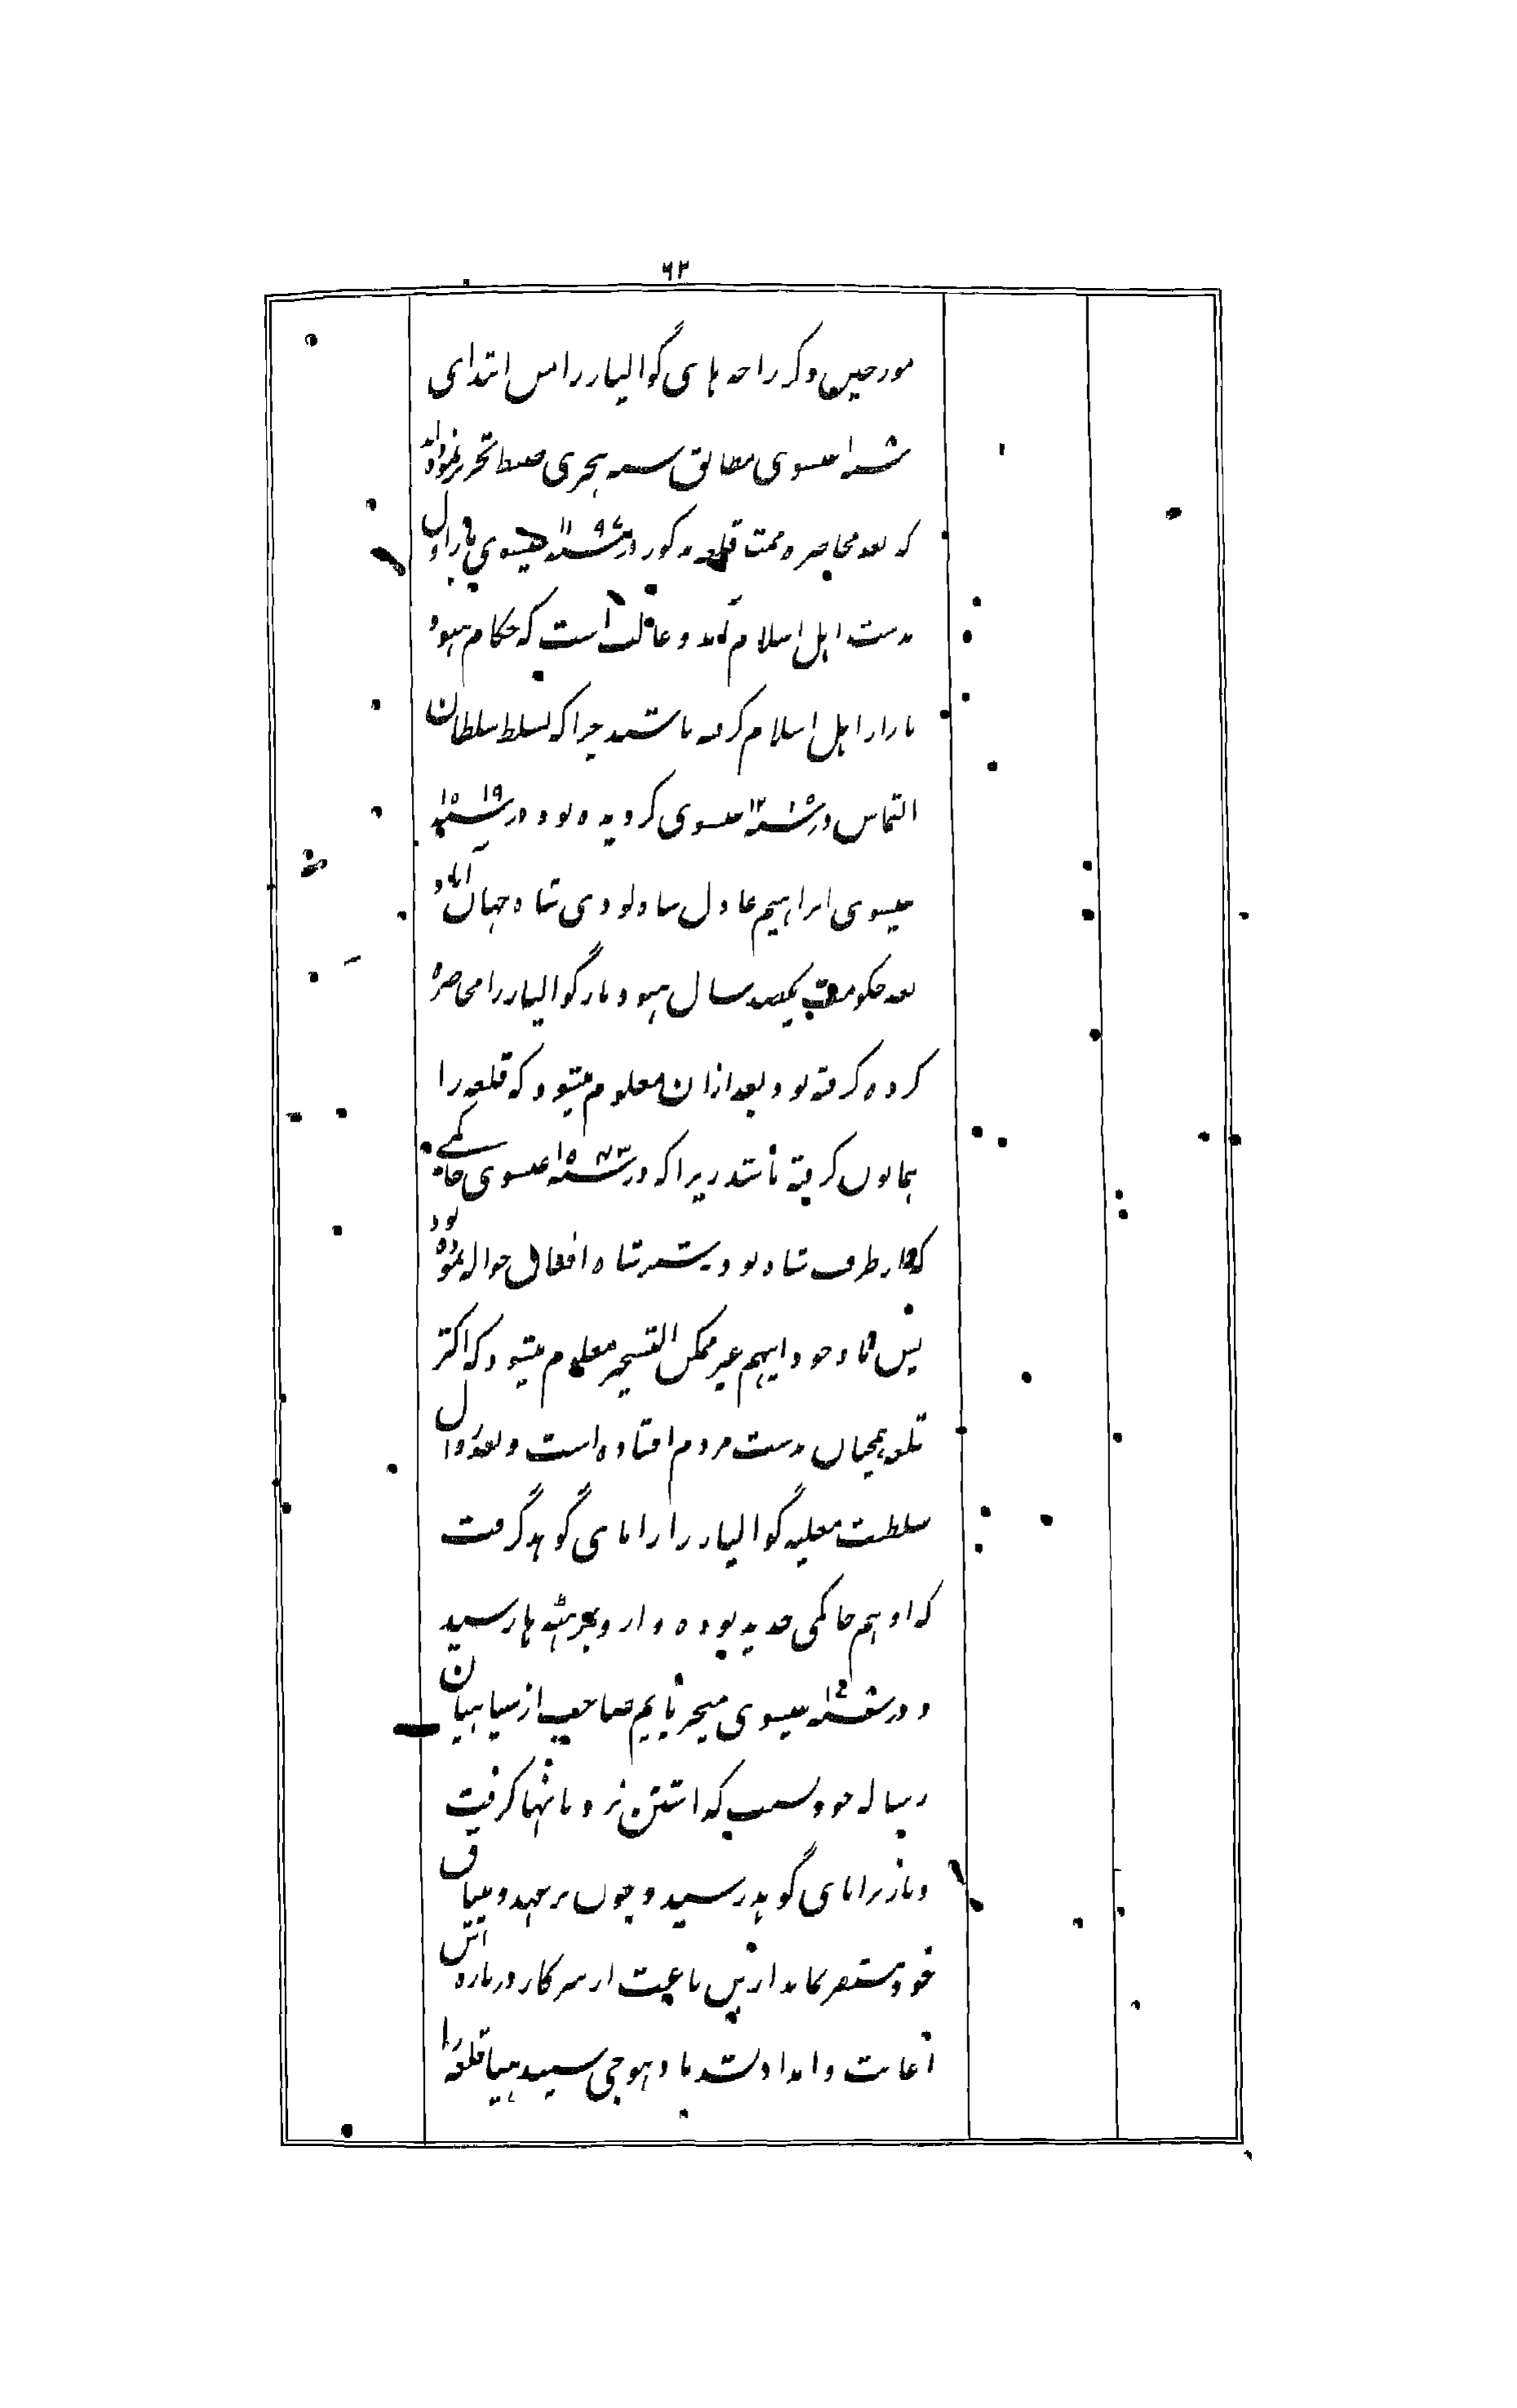 ۶۲
مورخین ذکر راجه های گوالیار را من ابتدای
سنه عیسوی مطابق سنه هجری ضبط تحریر نموده اند
که بعد محاصره قلعه مذکور در سنه ۱۱۹۶ عیسوی بار اول
بدست اهل اسلام آمد و غالب است که حکام هنود
باز از اهل اسلام گرفته باشند چرا که تسلط سلطان
التماس در سنه عیسوی گردیده بود و در سنه ۱۵۱۹
عیسوی ابراهیم عادل شاه لودی شاه جهان آباد
بعد حکومت یکصد سال هنود باز گوالیار را محاصره
کرده گرفته بود بعد ازان معلوم میشود که قلعه را
همایون گرفته باشد زیرا که در سنه ۱۵۴۳ عیسوی حاکمے
که از طرف شاه بود بشیر شاه افغان حواله نموده بود
پس با وجود اینهم غیر ممکن التسخیر معلوم میشود که اکثر
قلعه همچنان بدست مردم افتاده است و بعد زوال
سلطنت مغلیه گوالیار را رانای گوهد گرفت
که او هم حاکمی جدید بوده و از و بمرهٹه ها رسید
و در سنه عیسوی میجر پاپم صاحب از سپاهیان
رساله خود بسبب که اشتن نردبانها گرفت
و باز برانای گوهد رسید و چون بر عهد و میثاق
خود مستقر نماند ازین باعث از سرکار درباره اش
اعانت و امداد نشد مادهوجی سیندهیا قلعه را